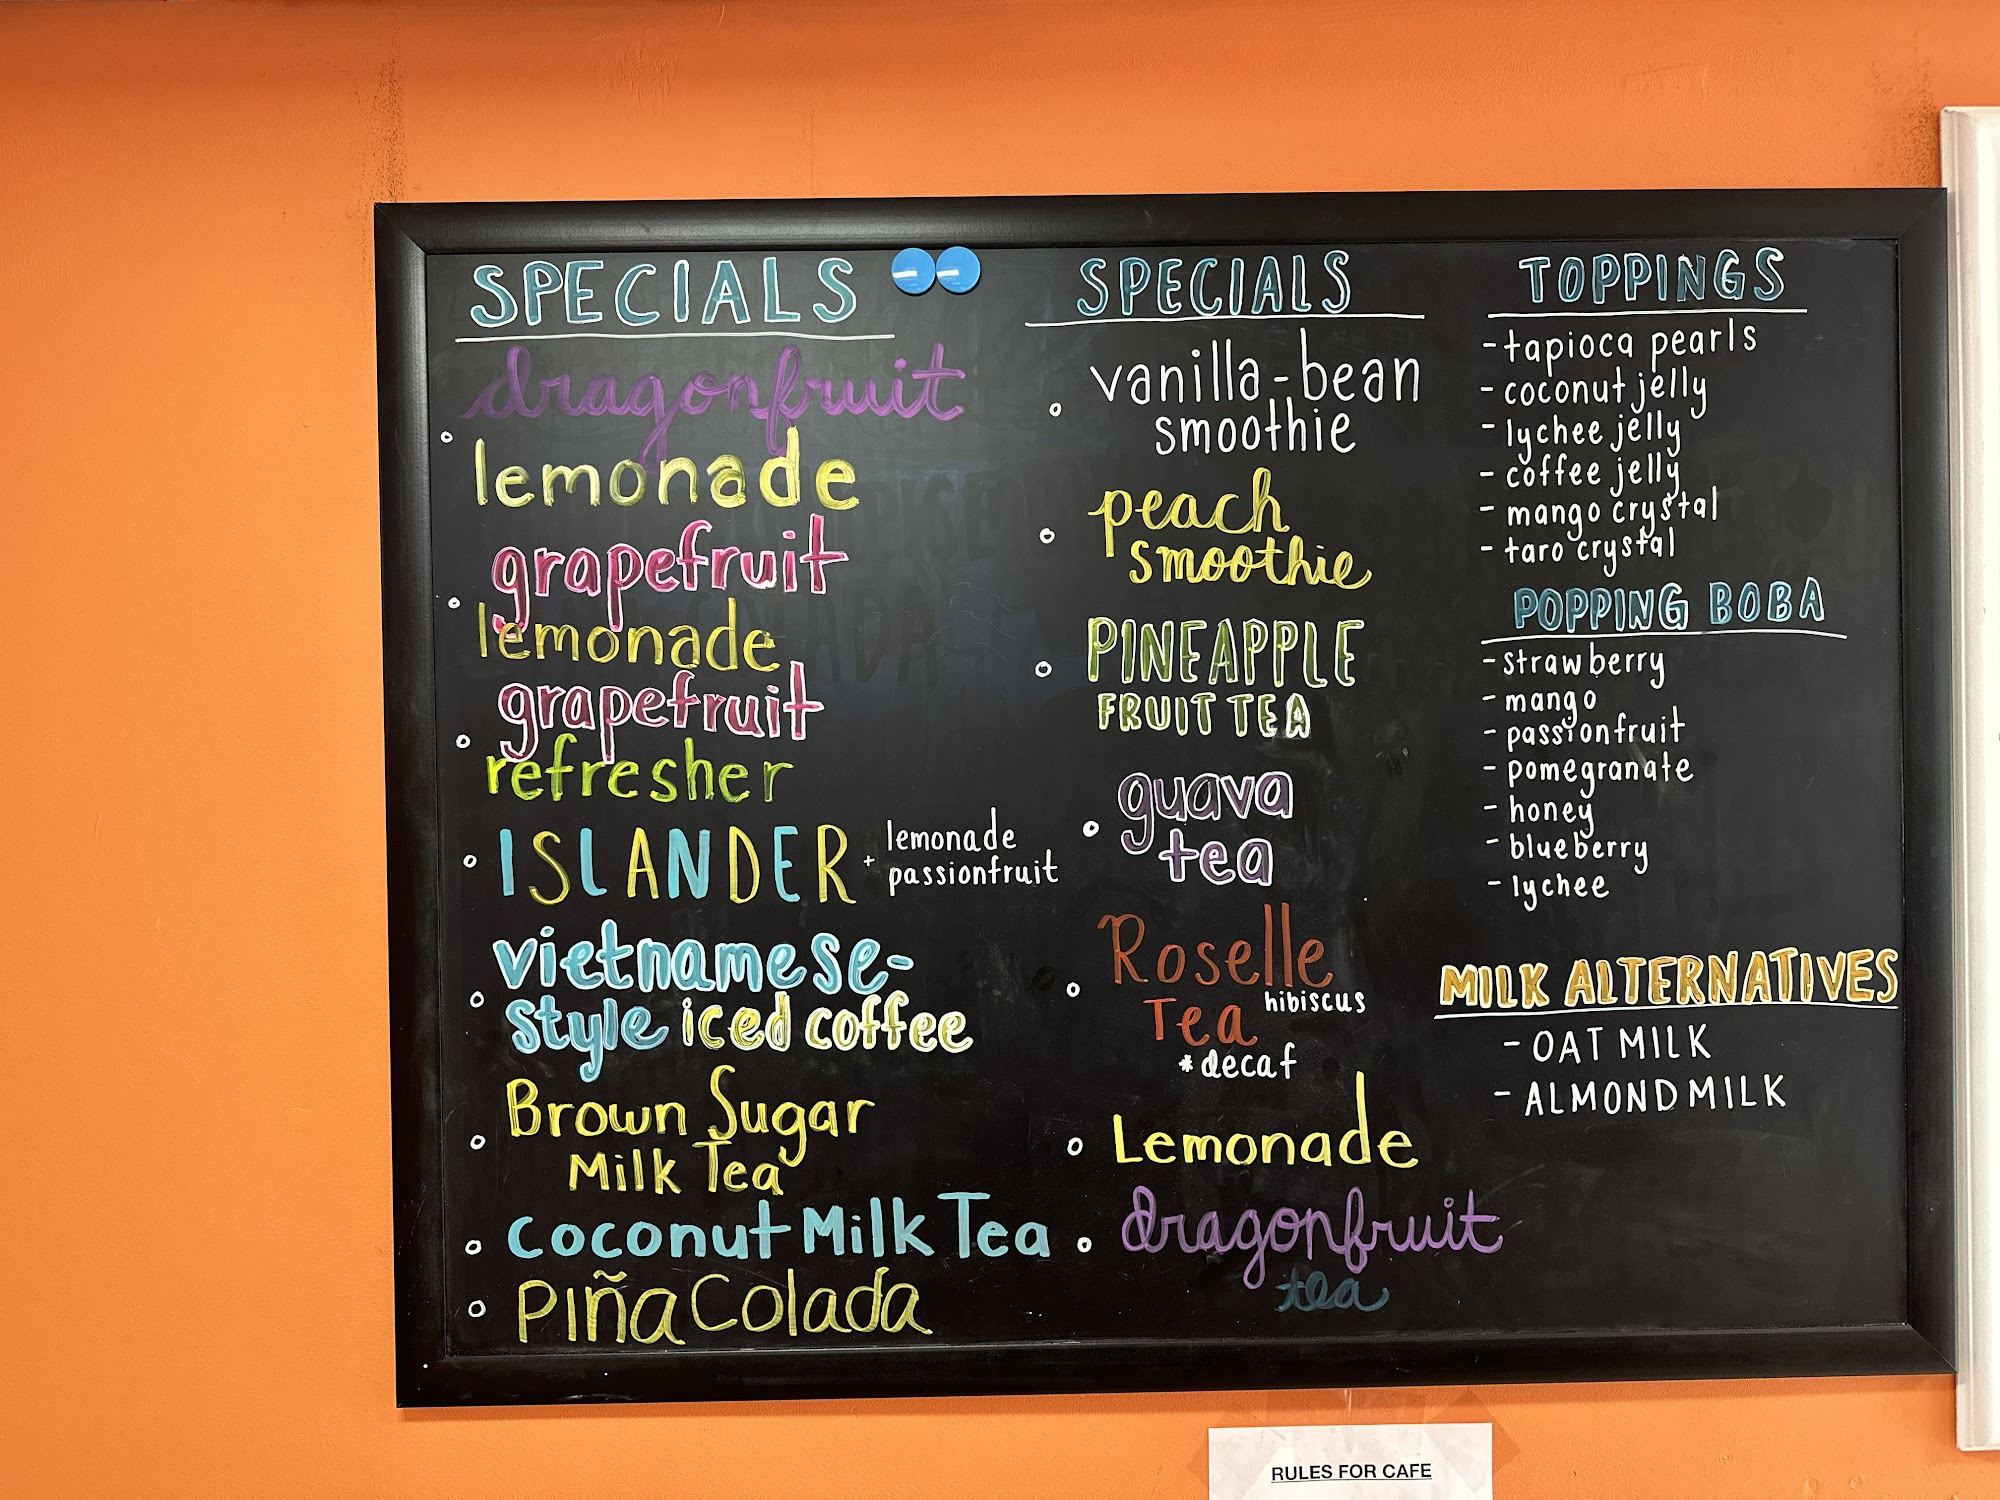 SPECIALS
dragonfruit
lemonade
grapefruit
lemonade
grapefruit
refresher
ISLANDER + lemonade
passionfruit
vietnamese-
style iced coffee
Brown Sugar
Milk Tea
coconut Milk Tea
Piña Colada
SPECIALS
vanilla-bean
smoothie
peach
smoothie
PINEAPPLE
FRUIT TEA
guava
tea
Roselle
Tea hibiscus
*decaf
Lemonade
dragonfruit
tea
TOPPINGS
- tapioca pearls
- coconut jelly
- lychee jelly
- coffee jelly
- mango crystal
- taro crystal
POPPING BOBA
- strawberry
- mango
- passionfruit
- pomegranate
- honey
- blueberry
- lychee
MILK ALTERNATIVES
- OAT MILK
- ALMOND MILK
RULES FOR CAFE